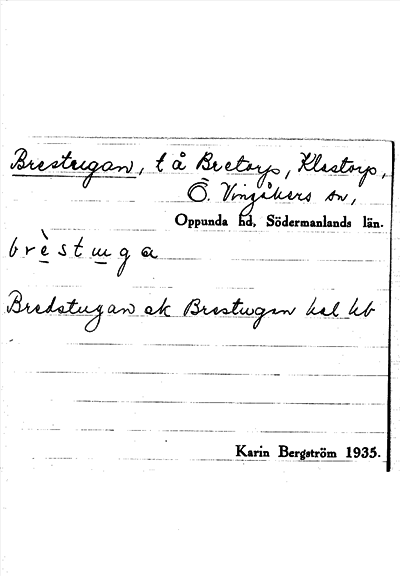 Brestugan, t å Bretorp, Klastorp,
Ö. Vingåkers sn,
Oppunda hd, Södermanlands län.
brèstuga
Bredstugan ek Brestugan hsl kb
Karin Bergström 1935.